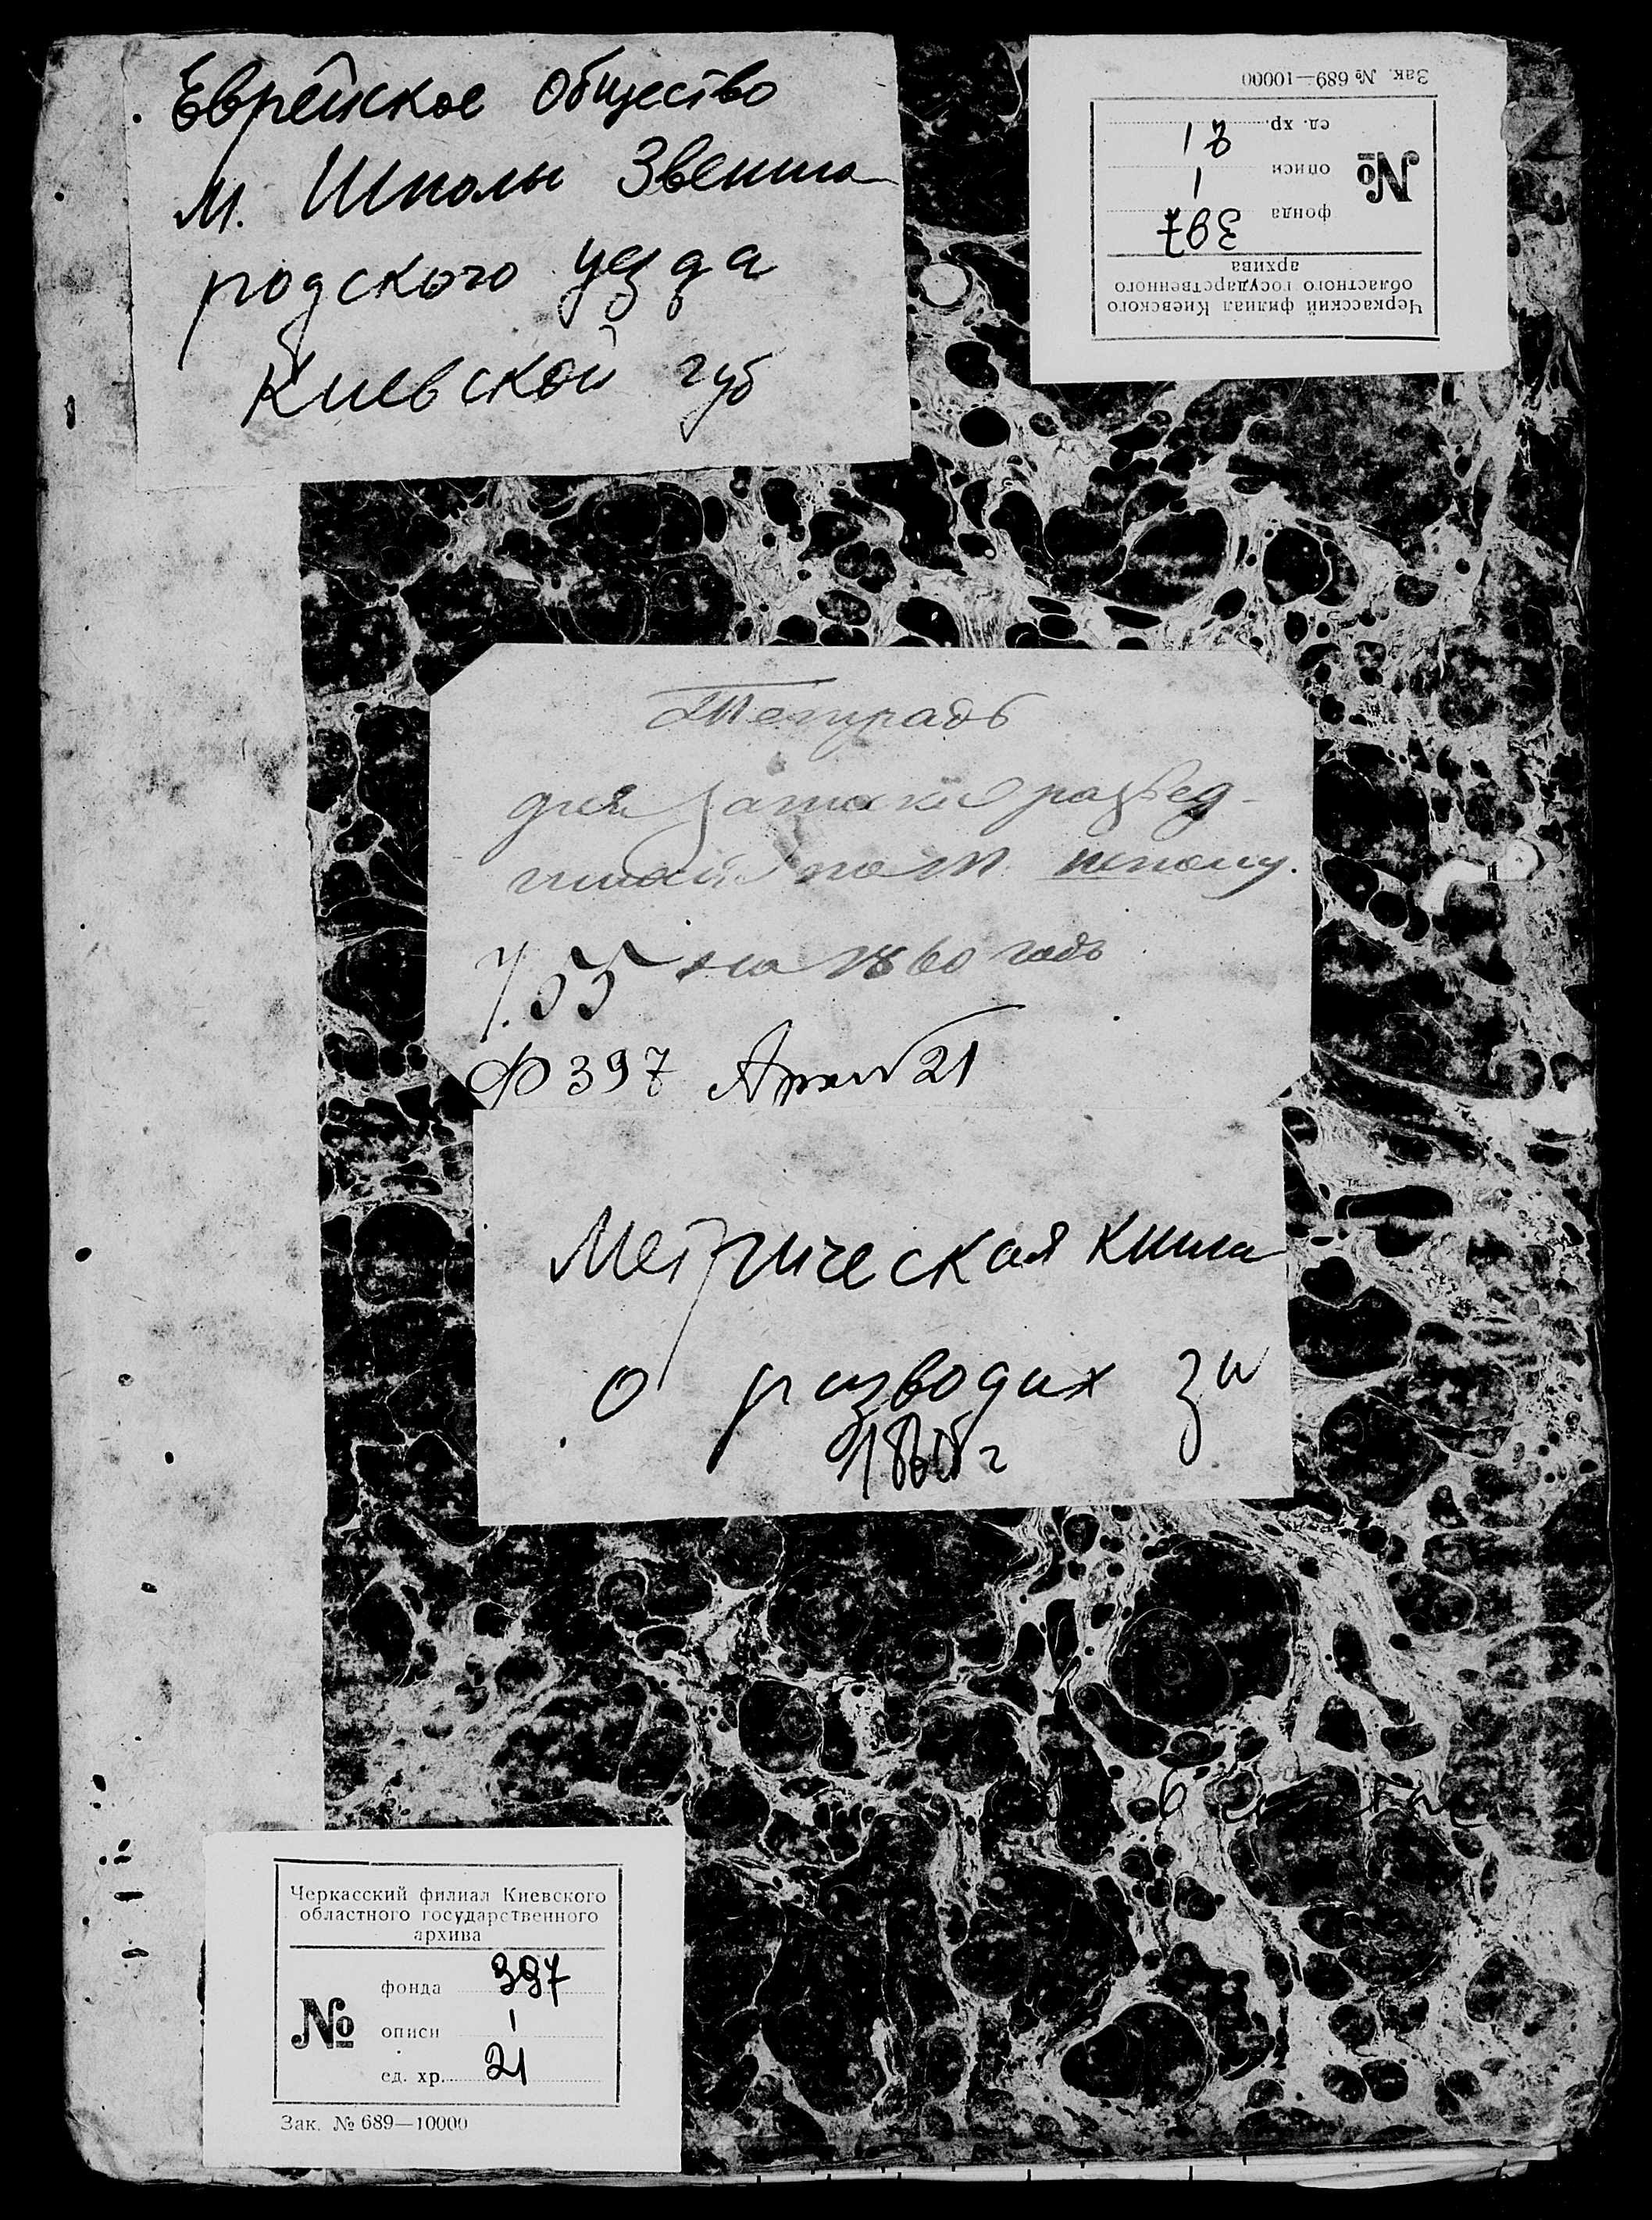 Еврейское общество
м. Шполы Звениго
родского уезда
Киевской губ
Зак. № 689—10000
Черкасский филиал Киевского
областного государственного
архива
№
фонда 397
описи 1
ед. хр. 21
Тетрадь
для
по м. шполу.
на 1860 годъ
55
Ф 397 Арх № 21
Метрическая книга
о разводах за
1860 г
Черкасский филиал Киевского
областного государственного
архива
№
фонда 397
описи 1
ед. хр. 21
Зак. № 689—10000